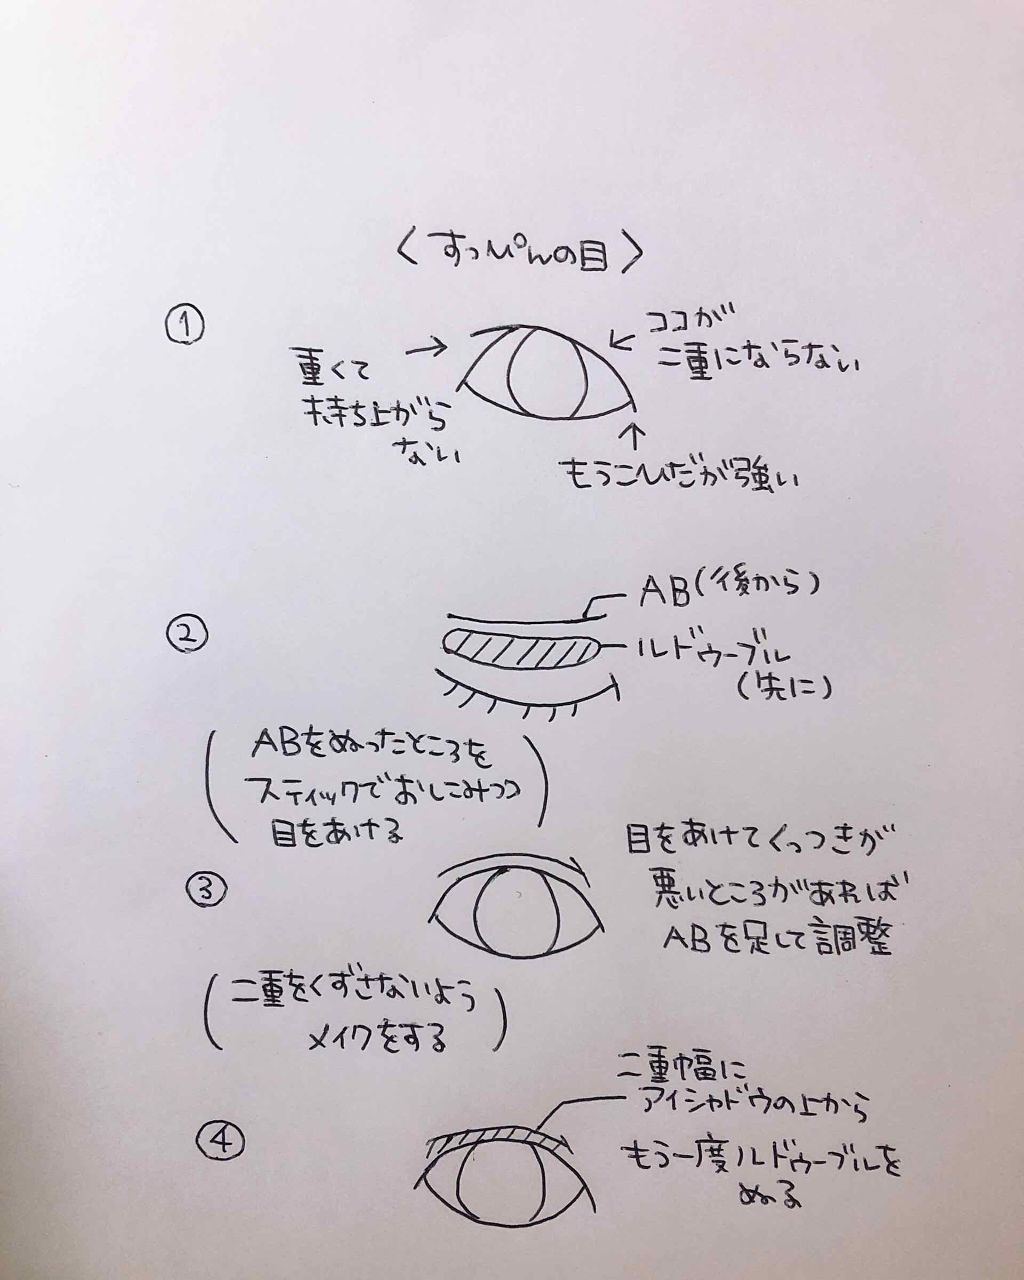 〈すっぴんの目〉
①
重くて
持ち上がら
ない
ココが
二重にならない
もうこひだが強い
②
AB(後から)
ルドゥーブル
(先に)
(ABをぬったところを
スティックでおしこみつつ
目をあける)
③
目をあけてくっつきが
悪いところがあれば
ABを足して調整
(二重をくずさないよう
メイクをする)
④
二重幅に
アイシャドウの上から
もう一度ルドゥーブルを
ぬる